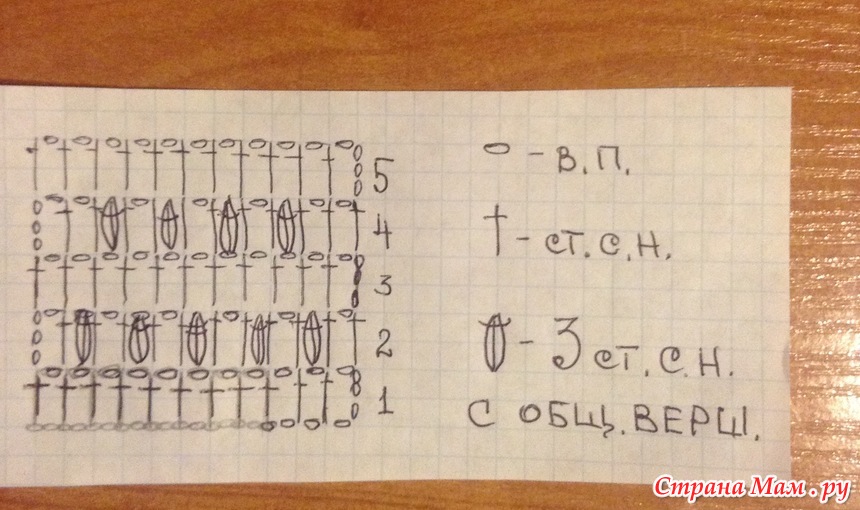 5
4
3
2
1
- В.П.
- СТ.С.Н.
- 3 СТ.С.Н.
С ОБЩ.ВЕРШ.
Страна Мам.ру